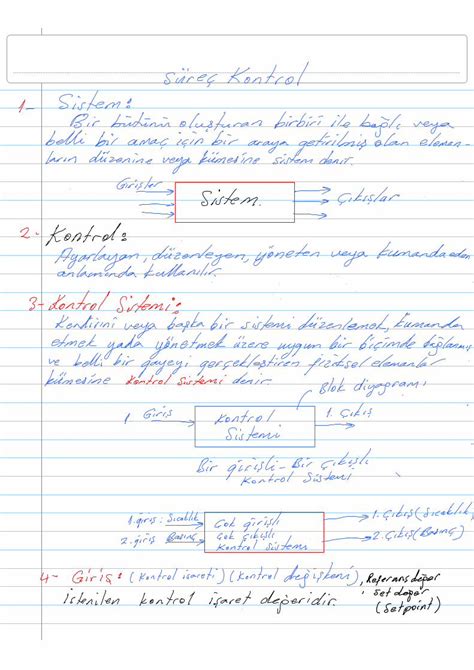 Süreç Kontrol
1- Sistem:
Bir bütünü oluşturan birbiri ile bağlı veya
belli bir amaç için bir araya getirilmiş olan eleman-
ların düzenine veya kümesine sistem denir.
Girişler
Sistem.
Çıkışlar
2- Kontrol:
Ayarlayan, düzenleyen, yöneten veya kumanda eden
anlamında kullanılır.
3- Kontrol Sistemi:
Kendisini veya başka bir sistemi düzenlemek, kumanda
etmek yada yönetmek üzere uygun bir biçimde bağlanmış
ve belli bir gayeyi gerçekleştiren fiziksel elemanlar
kümesine Kontrol Sistemi denir.
Blok diyagramı
1 Giriş
Kontrol
Sistemi
1. Çıkış
Bir girişli - Bir çıkışlı
Kontrol Sistemi
1. giriş: Sıcaklık
2. giriş Basınç
Çok girişli
Çok çıkışlı
Kontrol sistemi
1. Çıkış (Sıcaklık)
2. Çıkış (Basınç)
4- Giriş: (Kontrol işareti) (Kontrol değişkeni), Referans değer
, Set değer
(Setpoint)
İstenilen kontrol işaret değeridir.